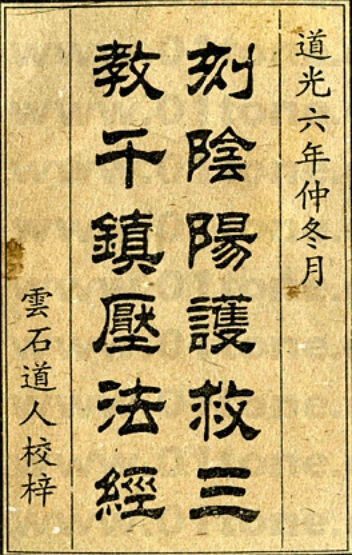 道光六年仲冬月
刻陰陽護救三
教千鎮壓法經
雲石道人校梓